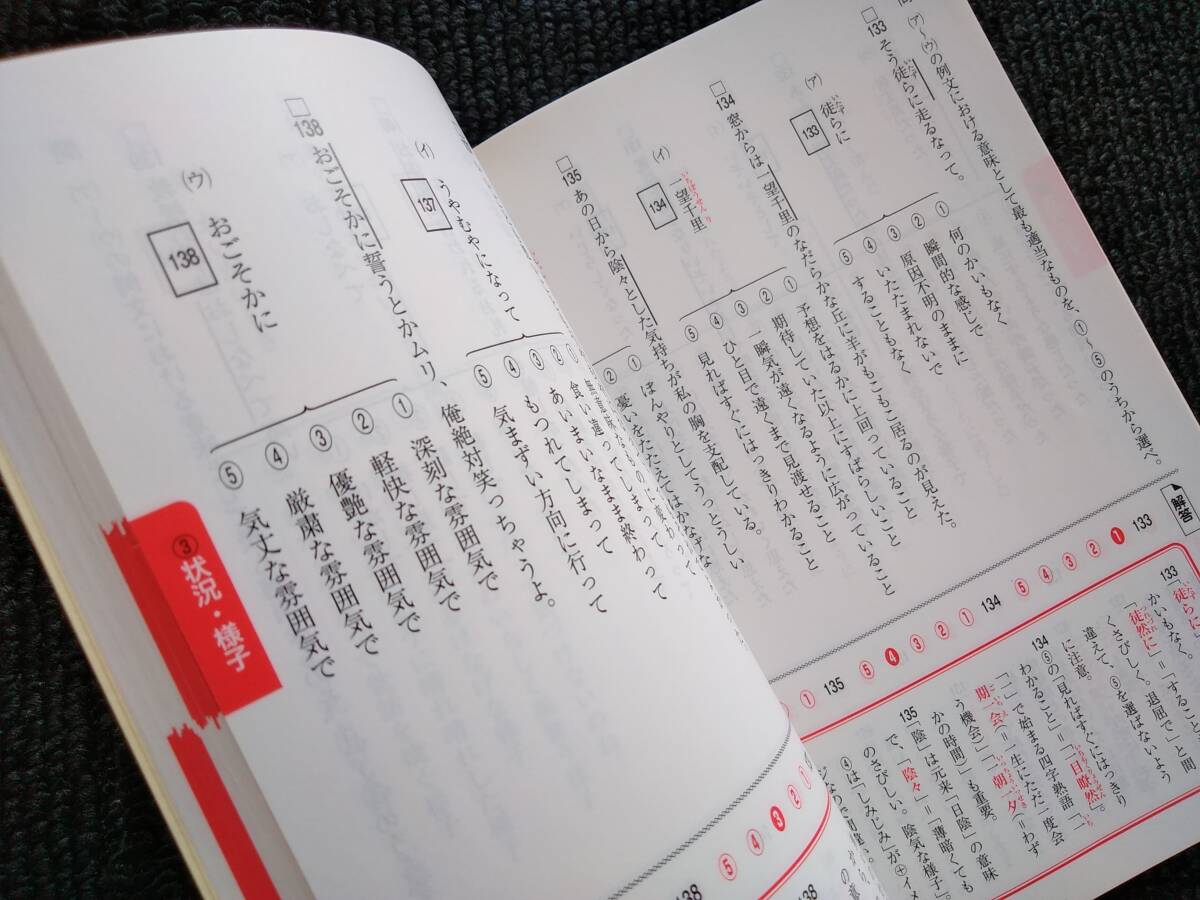 (ア)〜(ウ)の例文における意味として最も適当なものを、①〜⑤のうちから選べ。
□133 そう徒らに走るなって。
いたず
(ア) 徒らに
いたず
133
① 何のかいもなく
② 瞬間的な感じで
③ 原因不明のままに
④ いたたまれないで
⑤ することもなく
□134 窓からは一望千里のなだらかな丘に羊がもこもこ居るのが見えた。
(イ) 一望千里
いちぼうせんり
134
① 予想をはるかに上回っていること
② 期待していた以上にすばらしいこと
③ 一瞬気が遠くなるように広がっていること
④ ひと目で遠くまで見渡せること
⑤ 見ればすぐにはっきりわかること
□135 あの日から陰々とした気持ちが私の胸を支配している。
① ぼんやりとしてうっとうしい
② 憂いをたたえてはかなげな
解答
133
❶
②
③
④
⑤
134
①
②
③
❹
⑤
135
①
133 「徒らに
かいもなく。
「徒然に」=「すること
くさびしく。退屈で」と間
違えて、⑤を選ばないよう
に注意。
134 ⑤の「見ればすぐにはっきり
わかること」=「一目瞭然」。
いちもくりょうぜん
「一」で始まる四字熟語「一
期一会(=一生にただ一度会
う機会)」「一朝一夕(=わず
かの時間)」も重要。
135 「陰」は元来「日陰」の意味
で、「陰々」=「薄暗くても
のさびしい。陰気な様子」。
④は「しみじみ」が⊕イメ
(イ) うやむやになって
137
② 食い違ってしまって
③ あいまいなまま終わって
④ もつれてしまって
⑤ 気まずい方向に行って
□138 おごそかに誓うとかムリ、俺絶対笑っちゃうよ。
(ウ) おごそかに
138
① 深刻な雰囲気で
② 軽快な雰囲気で
③ 優艶な雰囲気で
④ 厳粛な雰囲気で
⑤ 気丈な雰囲気で
①
②
❸
④
⑤
138
138
③状況・様子